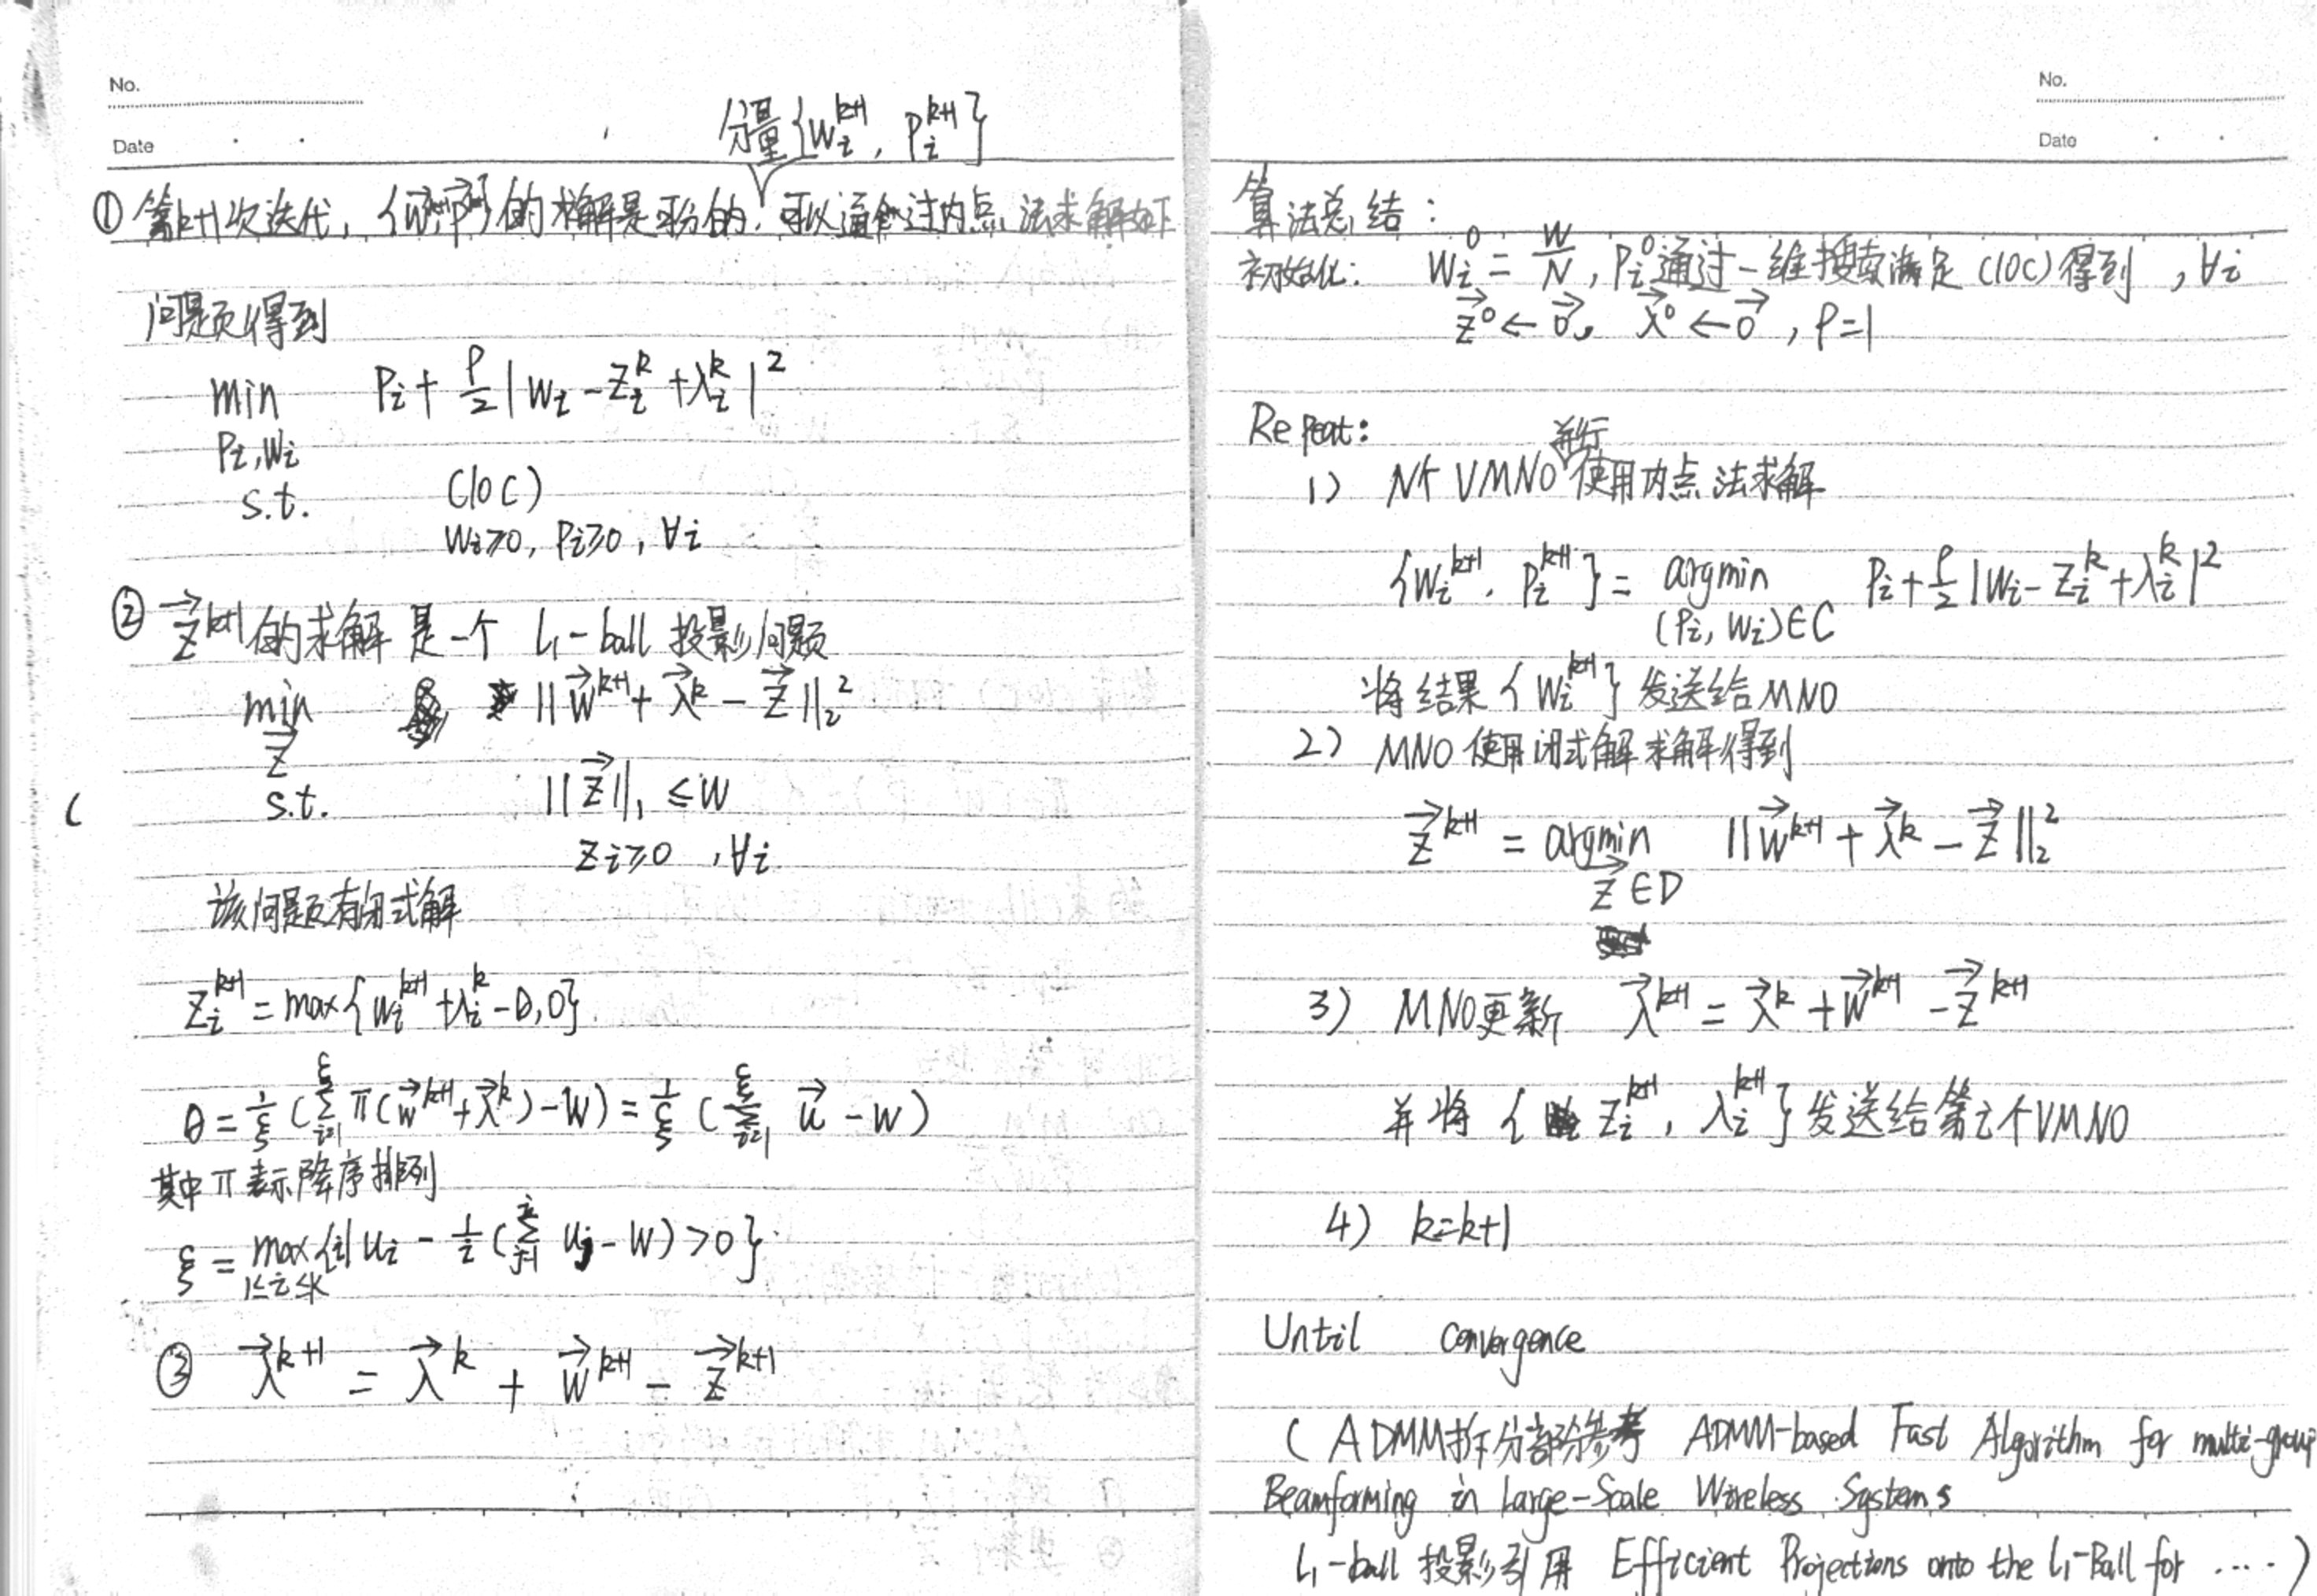 No.
Date
分量{W_i^{k+1}, P_i^{k+1}}
① 第k+1次迭代, {\vec{w}^{k+1}, \vec{p}^{k+1}}的求解是可分的, 可以通过内点法求解如下
问题得到
min P_i + ρ/2 |W_i - Z_i^k + λ_i^k|^2
P_i, W_i
s.t. (10c)
W_i≥0, P_i≥0, ∀i
② \vec{Z}^{k+1}的求解是一个 L_1-ball 投影问题
min ||\vec{W}^{k+1} + \vec{λ}^k - \vec{Z}||_2^2
\vec{Z}
s.t. ||\vec{Z}||_1 ≤ W
Z_i≥0, ∀i.
该问题有闭式解
Z_i^{k+1} = max{W_i^{k+1} + λ_i^k - θ, 0}.
θ = 1/ξ (∑_{i=1}^{ξ} π(\vec{w}^{k+1} + \vec{λ}^k) - W) = 1/ξ (∑_{i=1}^{ξ} \vec{u} - W)
其中π表示降序排列
ξ = max_{1≤i≤K} {i| u_i - 1/i (∑_{j=1}^{i} u_j - W) > 0}.
③ \vec{λ}^{k+1} = \vec{λ}^k + \vec{W}^{k+1} - \vec{Z}^{k+1}
No.
Date
算法总结:
初始化: W_i^0 = W/N, P_i^0通过一维搜索满足(10c)得到, ∀i
\vec{Z}^0 ← \vec{0}, \vec{λ}^0 ← \vec{0}, ρ=1
Repeat:
1) N个VMNO并行使用内点法求解
{W_i^{k+1}, P_i^{k+1}} = argmin P_i + ρ/2 |W_i - Z_i^k + λ_i^k|^2
(P_i, W_i)∈C
将结果{W_i^{k+1}}发送给MNO
2) MNO使用闭式解求解得到
\vec{Z}^{k+1} = argmin ||\vec{W}^{k+1} + \vec{λ}^k - \vec{Z}||_2^2
\vec{Z}∈D
3) MNO更新 \vec{λ}^{k+1} = \vec{λ}^k + \vec{W}^{k+1} - \vec{Z}^{k+1}
并将{Z_i^{k+1}, λ_i^{k+1}}发送给第i个VMNO
4) k=k+1
Until convergence
(ADMM拆分部分参考 ADMM-based Fast Algorithm for multi-group
Beamforming in Large-Scale Wireless Systems
L_1-ball 投影引用 Efficient Projections onto the L_1-Ball for ....)